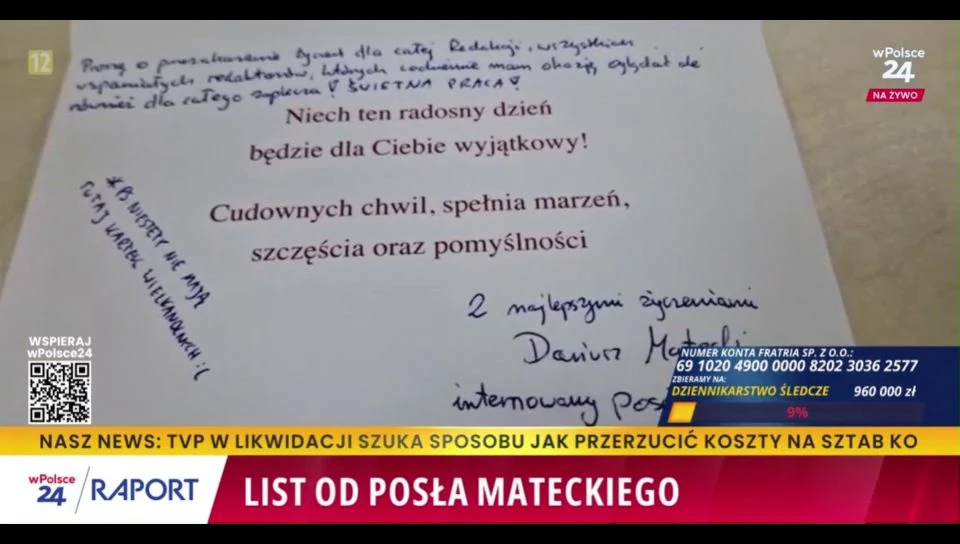 12
wPolsce
24
NA ŻYWO
Proszę o przekazanie życzeń dla całej Redakcji, wszystkich
wspaniałych redaktorów, których codziennie mam okazję oglądać ale
również dla całego zaplecza! ŚWIETNA PRACA!
Niech ten radosny dzień
będzie dla Ciebie wyjątkowy!
Cudownych chwil, spełnia marzeń,
szczęścia oraz pomyślności
*PS NIESTETY NIE MAJĄ
TUTAJ KARTEK WIELKANOCNYCH :(
Z najlepszymi życzeniami
Dariusz
internowany
WSPIERAJ
wPolsce24
NUMER KONTA FRATRIA SP. Z O.O.:
69 1020 4900 0000 8202 3036 2577
ZBIERAMY NA:
DZIENNIKARSTWO ŚLEDCZE 960 000 zł
9%
NASZ NEWS: TVP W LIKWIDACJI SZUKA SPOSOBU JAK PRZERZUCIĆ KOSZTY NA SZTAB KO
wPolsce
24 / RAPORT
LIST OD POSŁA MATECKIEGO